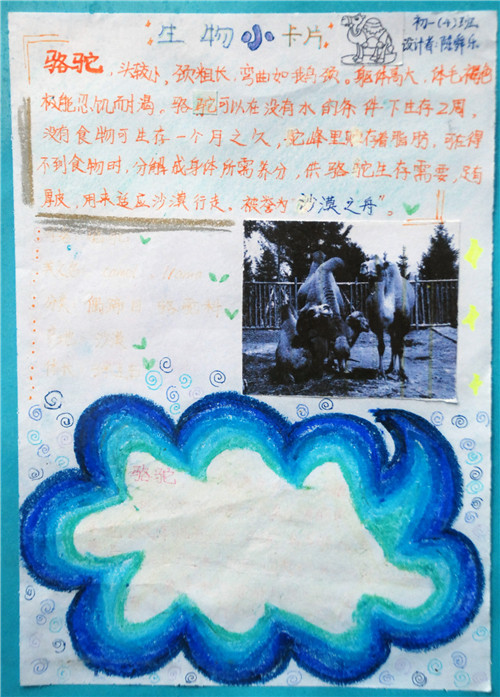 生物小卡片
初一(4)班
设计者:陈舜乐
骆驼,头较小,颈粗长,弯曲如鹅颈。躯体高大,体毛褐色
极能忍饥耐渴。骆驼可以在没有水的条件下生存2周,
没有食物可生存一个月之久,驼峰里贮存着脂肪,可在得
不到食物时,分解成身体所需养分,供骆驼生存需要,足有
厚皮,用来适应沙漠行走。被誉为“沙漠之舟”。
英文名: camel
偶蹄目 骆驼科
沙漠
骆驼